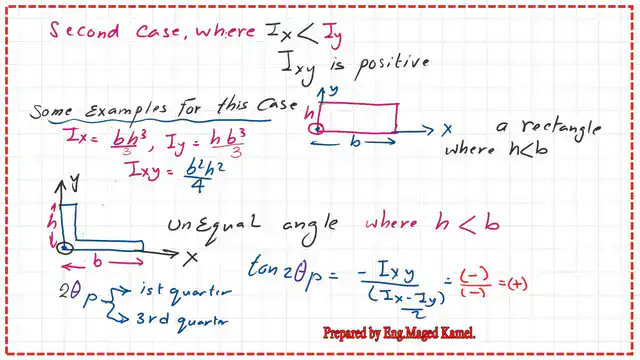 Second Case, where Ix < Iy
Ixy is positive
Some Examples For this Case
Ix = bh³/3, Iy = hb³/3
Ixy = b²h²/4
y
h
x
b
a rectangle
where h<b
y
h
t
b
x
unEqual angle where h < b
tan 2θp = -Ixy/((Ix-Iy)/2) = (-)/(-) = (+)
2θp
ist quarter
3rd quarter
Prepared by Eng.Maged Kamel.